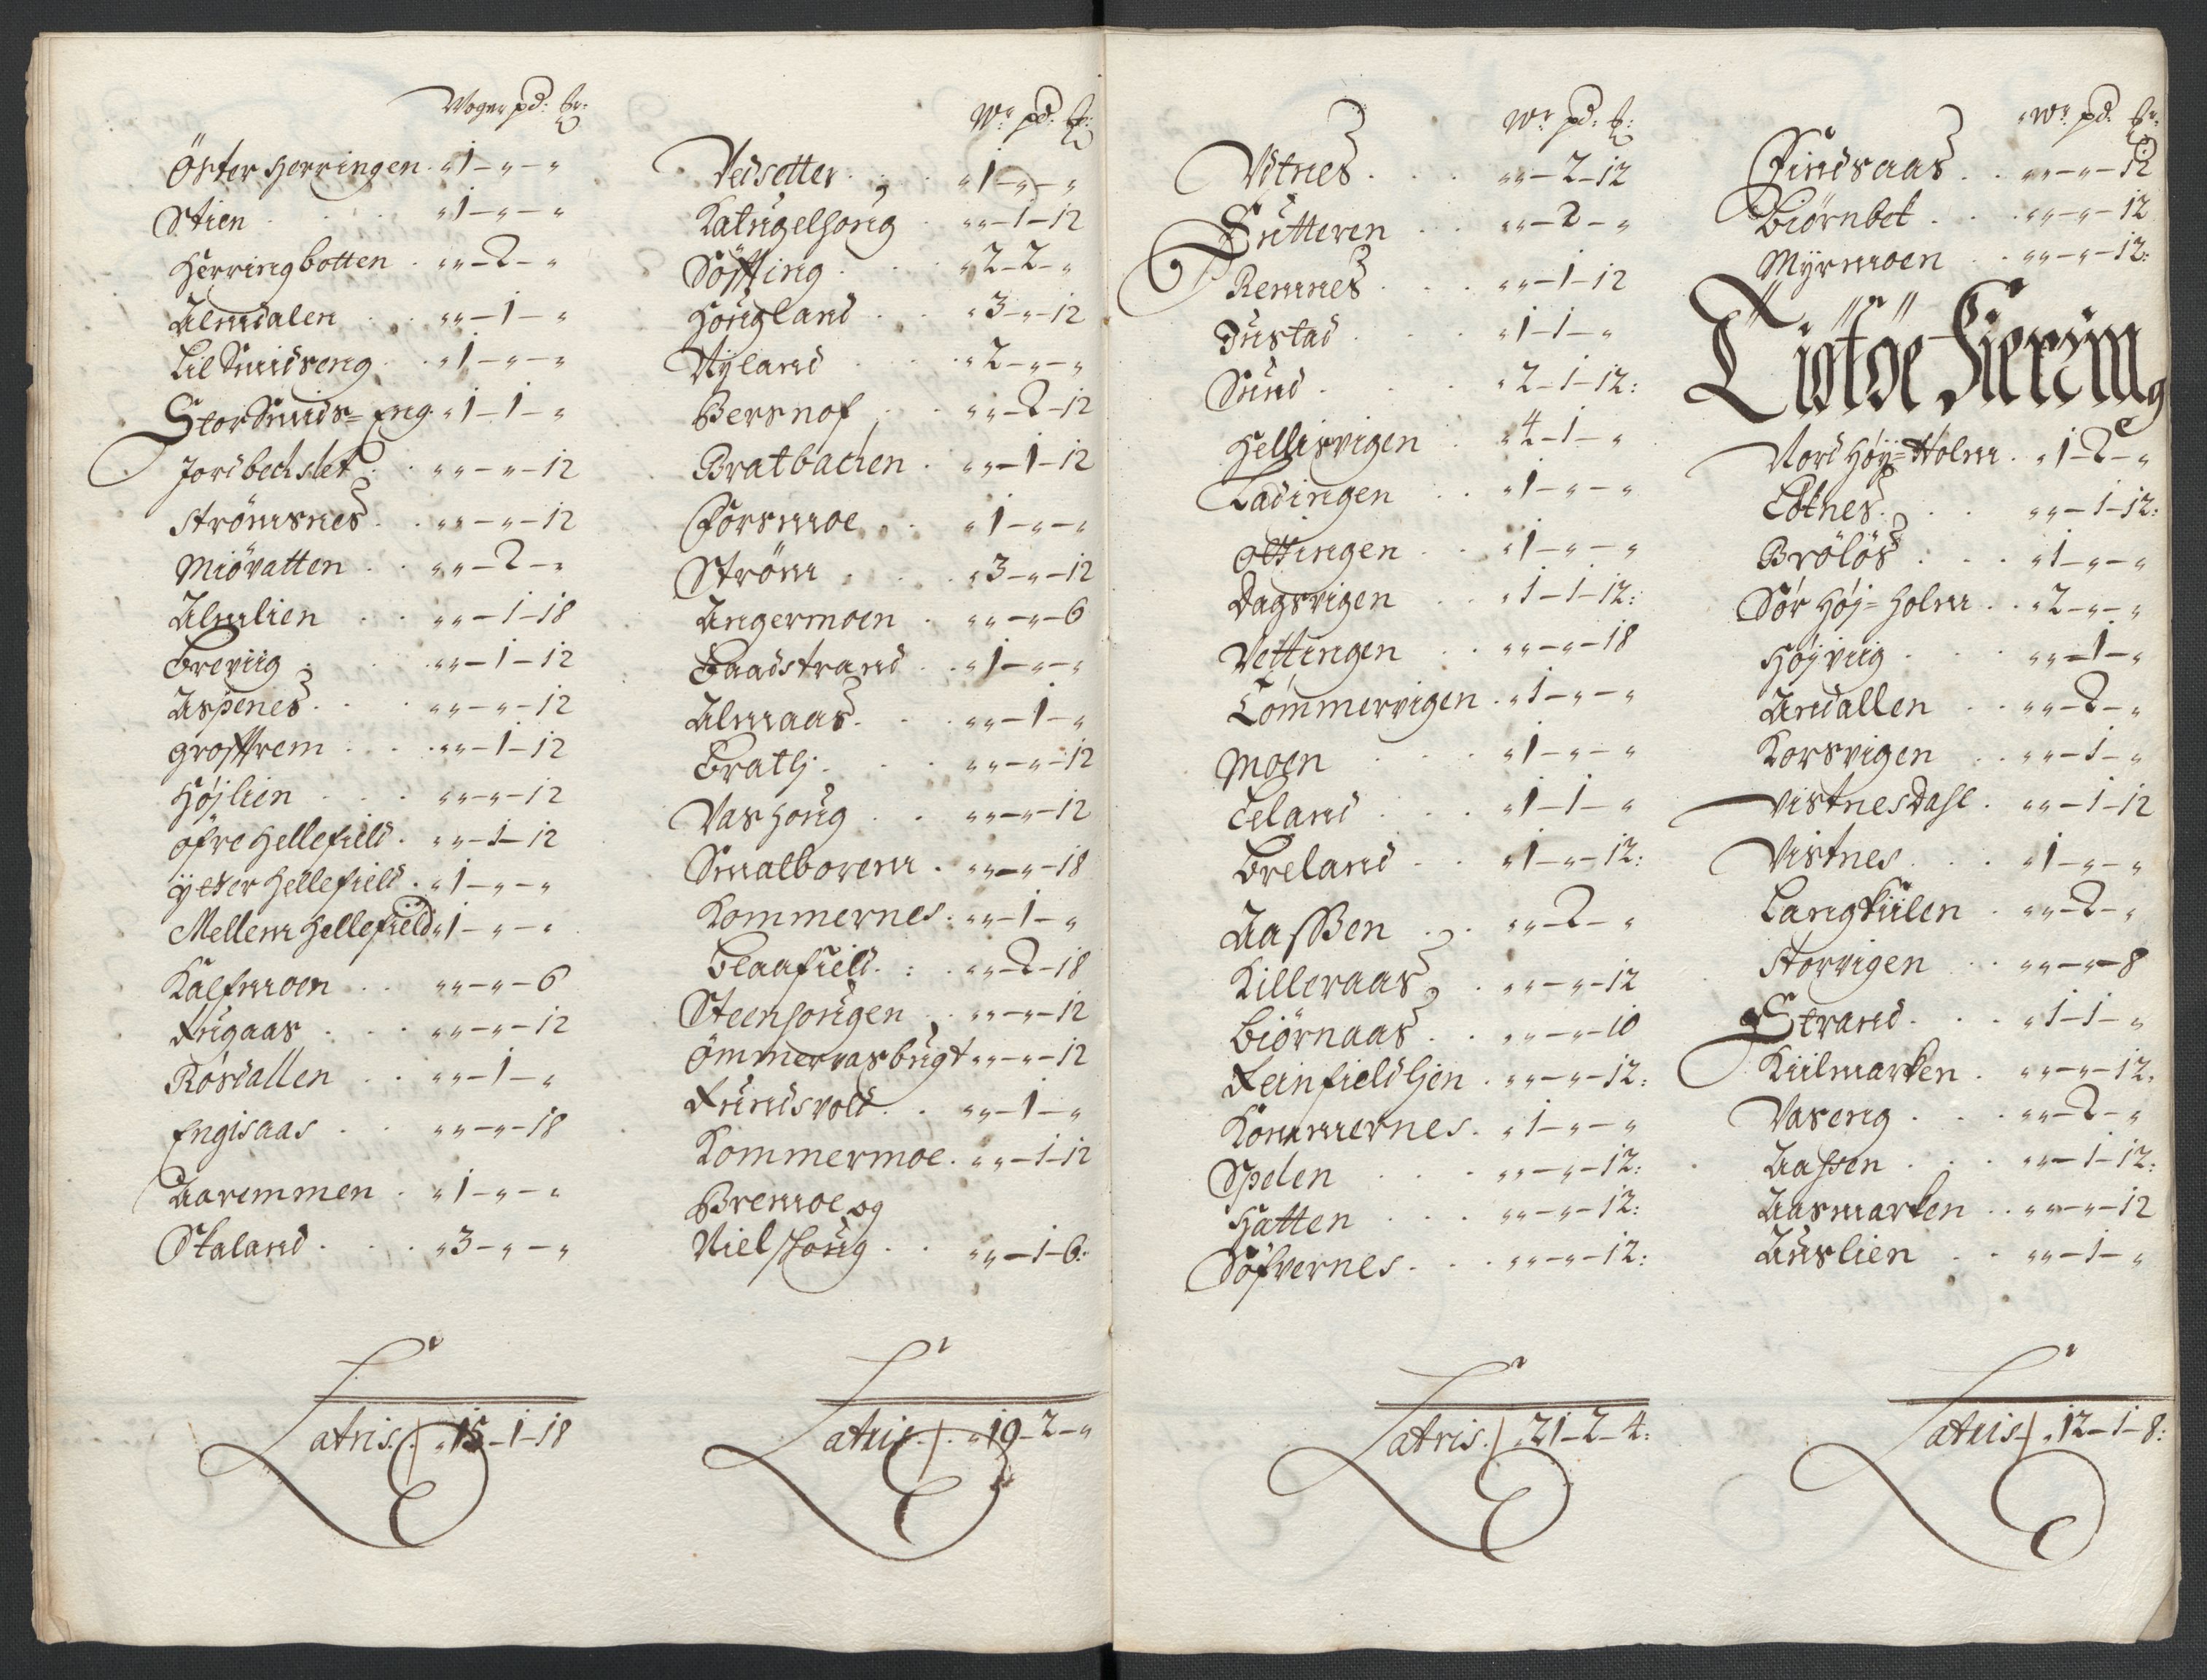 Woger pd: Er:
Öster Herringen . „ 1 – „ – „
Stien . . . „ 1 – „ – „
Herringbotten . „ „ – 2 – „
Almdalen . . „ „ – 1 – „
Lil Smidseng . . „ 1 – „ – „
Stor Smids= Eng . „ 1 – 1 – „
Jordbechslet . . „ „ – „ – 12
Strömsnes . . „ „ – „ – 12
Miövatten . . „ „ – 2 – „
Almlien . . „ „ – 1 – 18
Breviig . . „ „ – 1 – 12
Aspenes . . „ „ – „ – 12
groffrem . . „ „ – 1 – 12
Höjlien . . . „ „ – „ – 12
öfre Hellefield . „ „ – 1 – 12
ÿtter Hellefield . „ 1 – „ – „
Mellem Hellefield „ 1 – „ – „
Kalfmoen . . „ „ – „ – 6
Fugaas . . . „ „ – „ – 12
Rösdallen . . „ „ – 1 – „
Engisaas . . „ „ – „ – 18
Aaremmen . „ 1 – „ – „
Skaland . . . „ 3 – „ – „
Latris . / . „ 15 – 1 – 18
Wr pd: Er:
Vedsetter . . . „ 1 – „ – „
Katugelhoug . „ „ – 1 – 12
Söffting . . . „ 2 – 2 – „
Hougland . . „ 3 – „ – 12
Nÿland . . . „ 2 – „ – „
Bersnof . . . „ „ – 2 – 12
Bratbachen . „ „ – 1 – 12
Forsmoe . . „ 1 – „ – „
Ström . . . „ 3 – „ – 12
Angermoen . „ „ – „ – 6
Baadstrand . . „ 1 – „ – „
Almaas . . . „ „ – 1 – „
Bratlj . . . „ „ – „ – 12
Vashoug . . „ „ – „ – 12
Smalborem . „ „ – „ – 18
Kommernes . „ „ – 1 – „
Blaafield . : . „ „ – 2 – 18
Steenhougen . . „ „ – „ – 12
Ömmervasbugt „ „ – „ – 12
Fundsvold . . „ „ – 1 – „
Kommermoe . „ „ – 1 – 12
Bremoe og
Nielskoug . . „ „ – 1 – 6:
Latris . / . „ 19 – 2 – „
Wr pd: Er:
Vitnes . . . „ „ – 2 – 12
Sutteren . . „ „ – 2 – „
Remnes . . . „ „ – 1 – 12
Justad . . . „ 1 – 1 – „
Sund . . . „ 2 – 1 – 12:
Hellisvigen . „ 4 – 1 – „
Ladingen . . „ 1 – „ – „
ottingen . . „ 1 – „ – „
Dagsvigen . . „ 1 – 1 – 12:
Vettingen . . „ „ – „ – 18
Tömmervigen . „ 1 – „ – „
Moen . . . „ 1 – „ – „
Leland . . . „ 1 – 1 – „
Breland . . „ 1 – „ – 12:
Aassen . . „ „ – 2 – „
Killeraas . . „ „ – „ – 12
Biörnaas . . „ „ – „ – 10
Reinfieldhen . „ „ – „ – 12:
Kommernes . „ 1 – „ – „
Spelen . . . „ „ – „ – 12:
Hatten . . . „ „ – „ – 12:
Söfvernes . . . „ „ – „ – 12:
Latris . / . 21 – 2 – 4:
Wr pd: Er:
Findsaas . . „ „ – „ – 12
Biörnbet . . . „ „ – „ – 12
Mÿrmoen . . „ „ – „ – 12:
Tiötöe Fierÿing
Nord Höÿ=Holm . „ 1 – 2 – „
Lötnes . . . „ „ – 1 – 12:
Brölös . . . „ 1 – „ – „
Sör Höj=Holm . . „ 2 – „ – „
Höjviig . . . „ „ – 1 – „
Andallen . . „ „ – 2 – „
Korsvigen . . „ „ – 1 – „
Vistnesdahl . „ „ – 1 – 12
Vistnes . . . „ 1 – „ – „
Langkiilen . „ „ – 2 – „
Storvigen . . „ „ – „ – 8
Strand . . . „ 1 – 1 – „
Kiilmarken . „ „ – „ – 12:
Vaseng . . . „ „ – 2 – „
Aassen . . . „ „ – 1 – 12:
Aasmarken . . „ „ – „ – 12
Auslien . . „ „ – 1 – „
Latris / . 12 – 1 – 8: